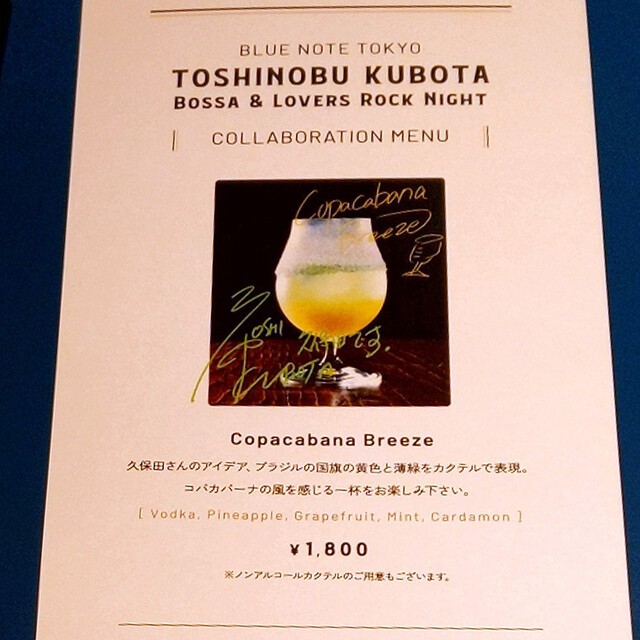 BLUE NOTE TOKYO
TOSHINOBU KUBOTA
BOSSA & LOVERS ROCK NIGHT
COLLABORATION MENU
Copacabana
Breeze
TOSHI
久保田です。
KUBOTA
Copacabana Breeze
久保田さんのアイデア、ブラジルの国旗の黄色と薄緑をカクテルで表現。
コパカバーナの風を感じる一杯をお楽しみ下さい。
[ Vodka, Pineapple, Grapefruit, Mint, Cardamon ]
¥1,800
※ノンアルコールカクテルのご用意もございます。